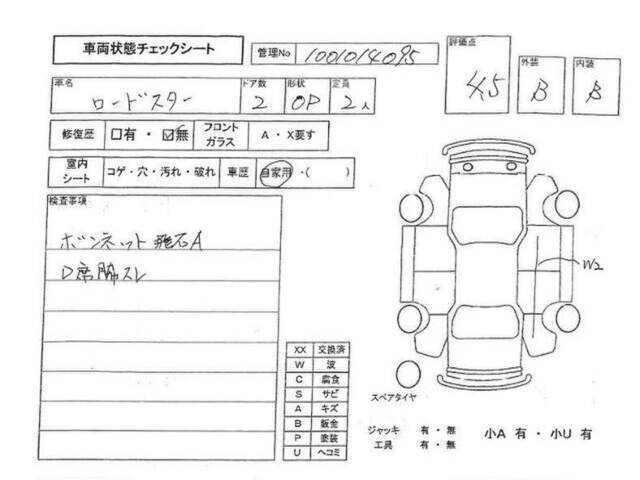 車両状態チェックシート
管理No 1001014095
評価点 4.5
外装 B
内装 B
車名 ロードスター
ドア数 2
形状 OP
定員 2人
修復歴 □有・☑無
フロントガラス A・X要す
室内シート コゲ・穴・汚れ・破れ
車歴 自家用・( )
検査事項
ボンネット飛石A
D席脇スレ
W2
XX 交換済
W 波
C 腐食
S サビ
A キズ
B 鈑金
P 塗装
U ヘコミ
スペアタイヤ
ジャッキ 有・無
工具 有・無
小A 有・小U 有